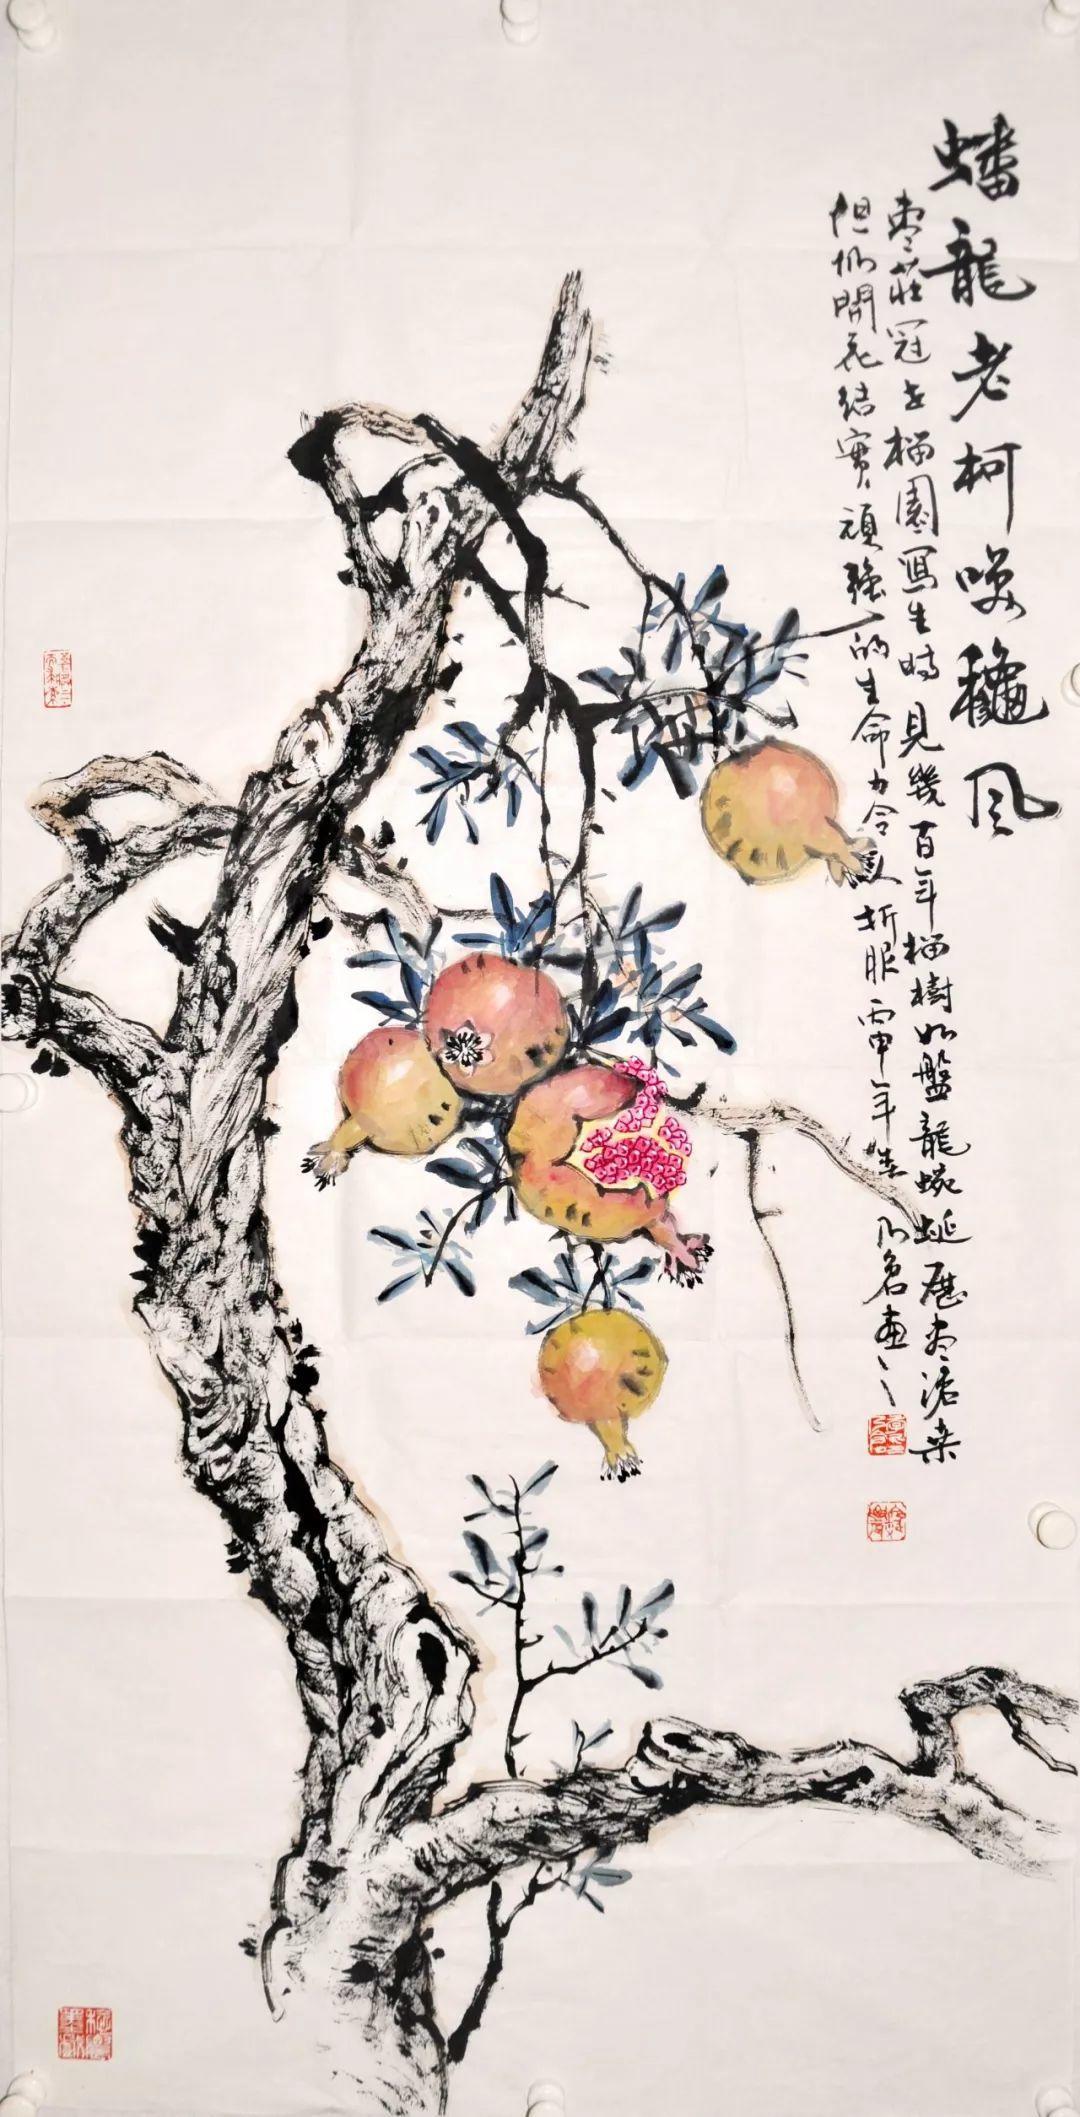 蟠龍老柯噗龝风
枣莊冠世榴園寫生時見幾百年榴樹如盤龍蜿蜒歷尽滄桑
但仍開花结實頑强的生命力令人折服丙申年
畫